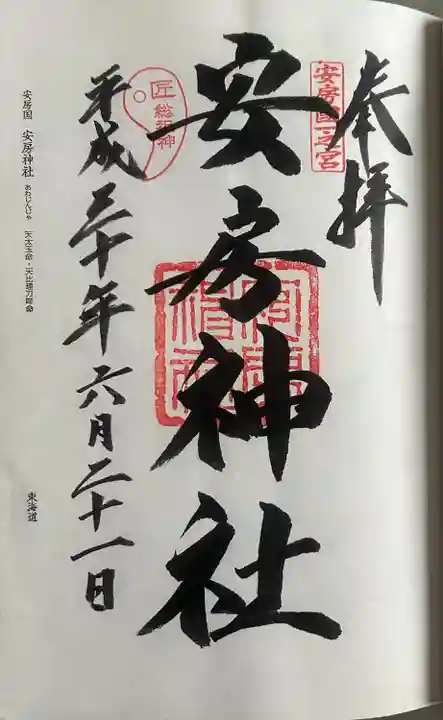 奉拝
安房国一之宮
安房神社
匠総祖神
平成三十年六月二十一日
安房国 安房神社 あわじんじゃ 天太玉命・天比理刀咩命
東海道